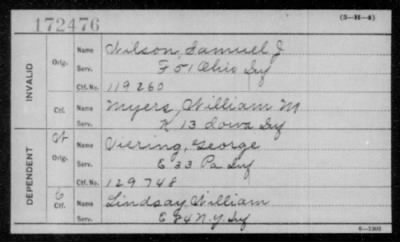 172476
(3-H-4)
INVALID
Orig. Name Wilson, Samuel J.
Serv. F 51 Ohio Inf
Ctf. No. 119260
Ctf. Name Myers, William M
Serv. K 13 Iowa Inf
DEPENDENT
Orig. Name Viering, George
Serv. E 33 Pa Inf
Ctf. No. 129748
Ctf. Name Lindsay William
Serv. E 84 N.Y. Inf